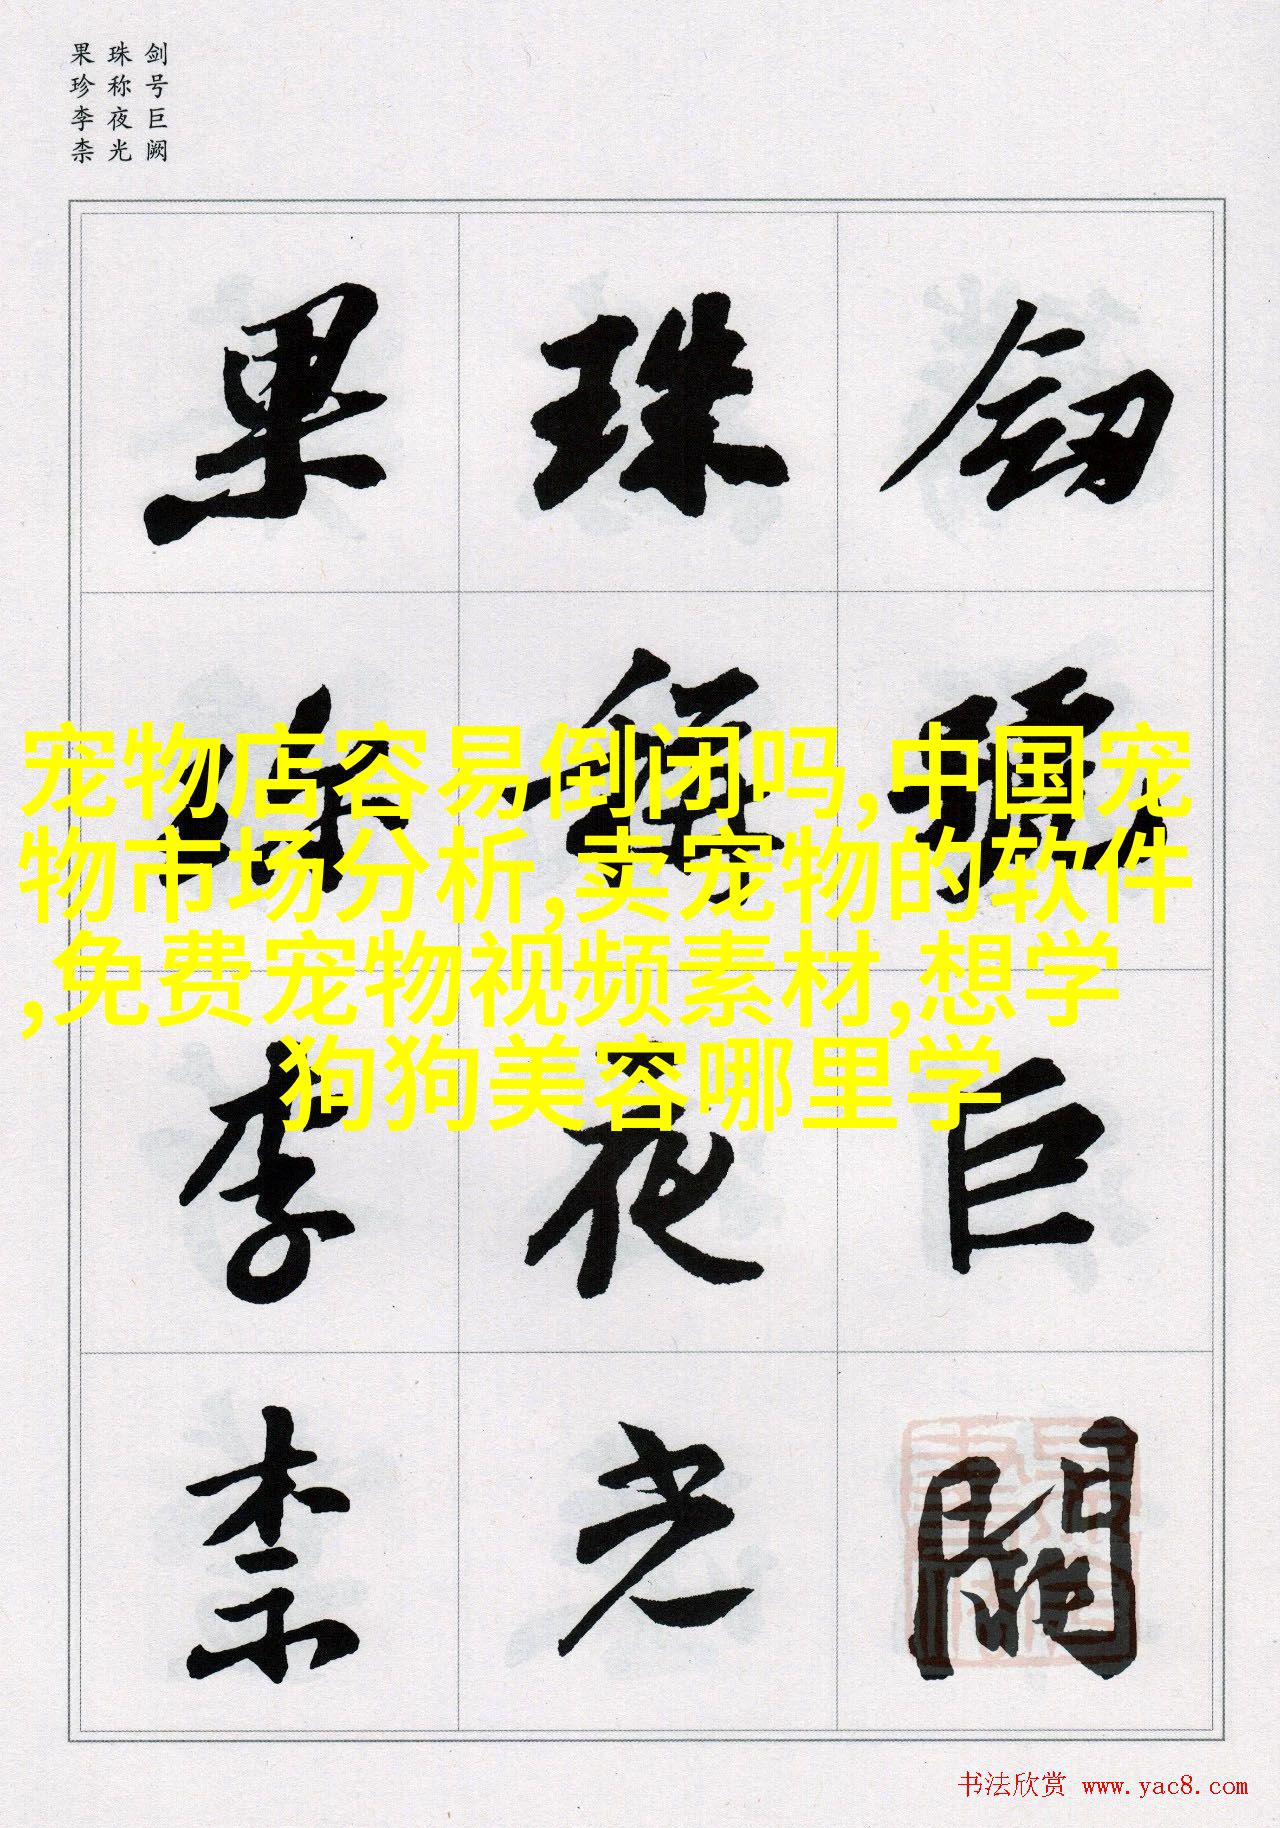 剑号巨阙
珠称夜光
果珍李柰
釰號巨闕
珠稱夜光
果珍李柰
宠物店容易倒闭吗,中国宠
物市场分析,卖宠物的软件
,免费宠物视频素材,想学
狗狗美容哪里学
书法欣赏 www.yac8.com